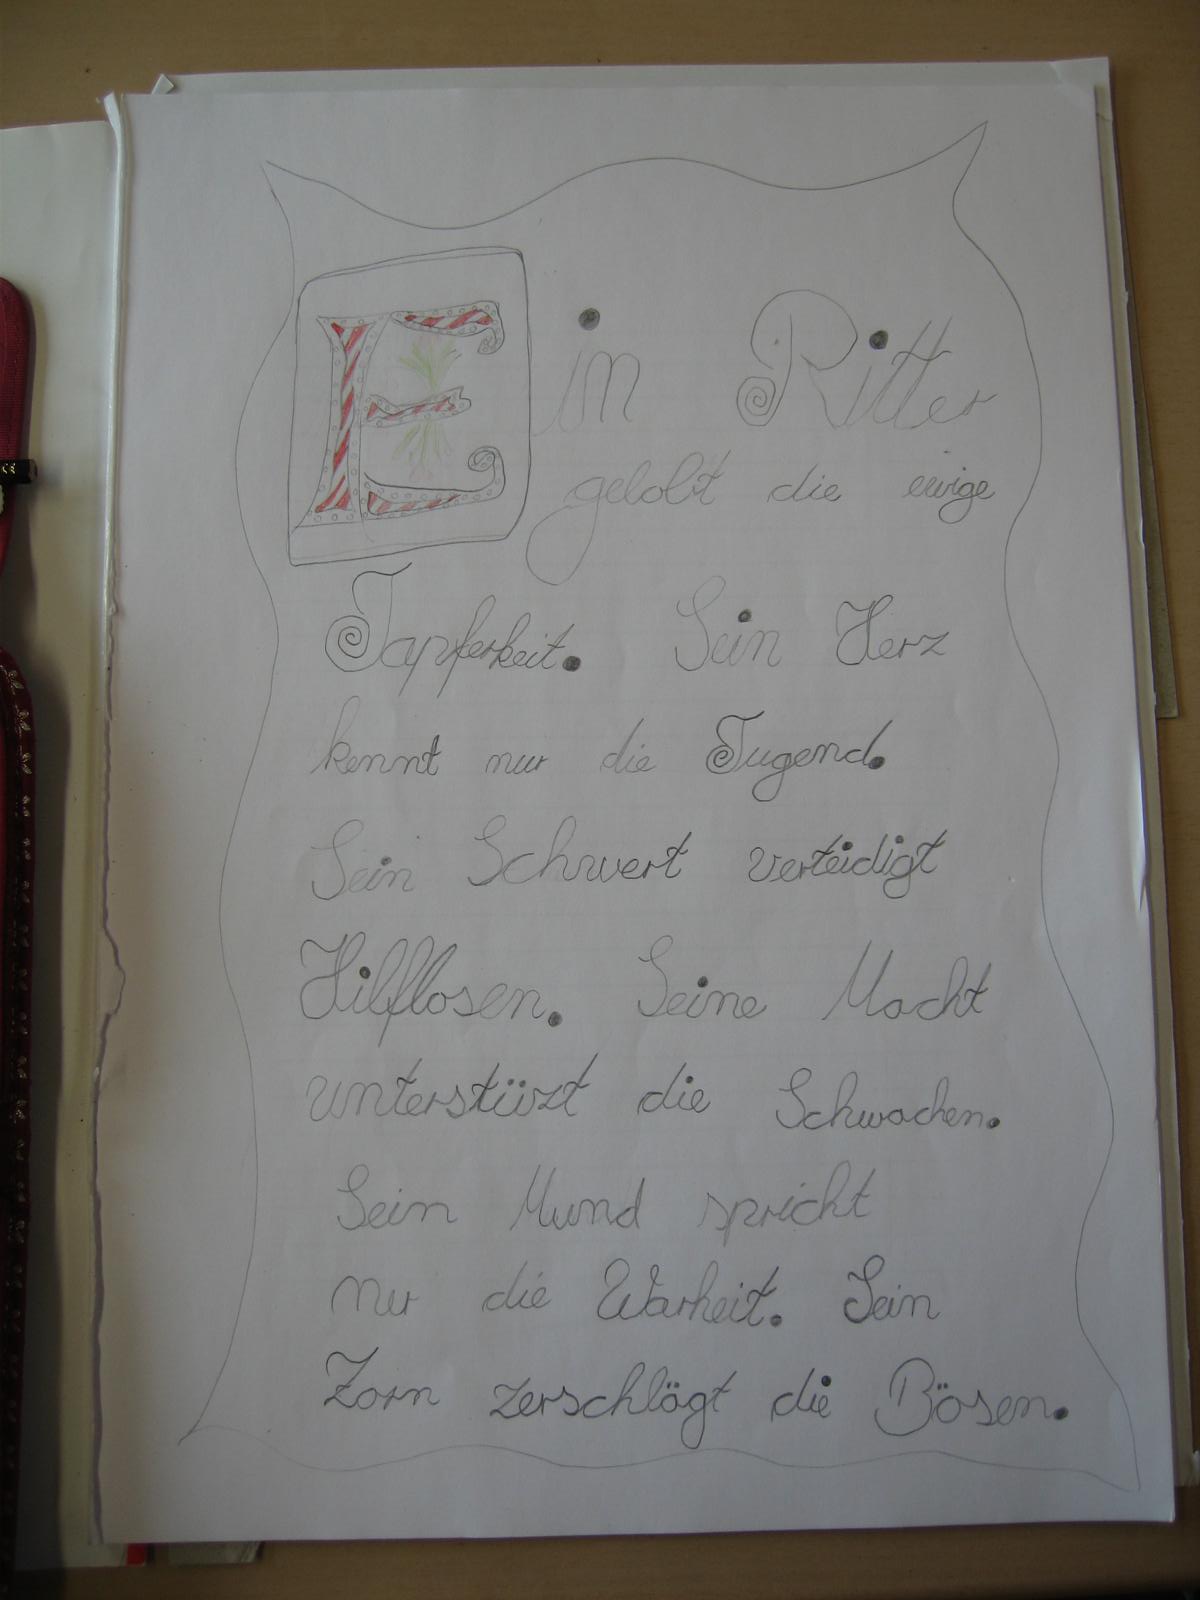 Ein Ritter
gelobt die ewige
Tapferkeit. Sein Herz
kennt nur die Tugend.
Sein Schwert verteidigt
Hilflosen. Seine Macht
unterstüzt die Schwachen.
Sein Mund spricht
nur die Warheit. Sein
Zorn zerschlägt die Bösen.